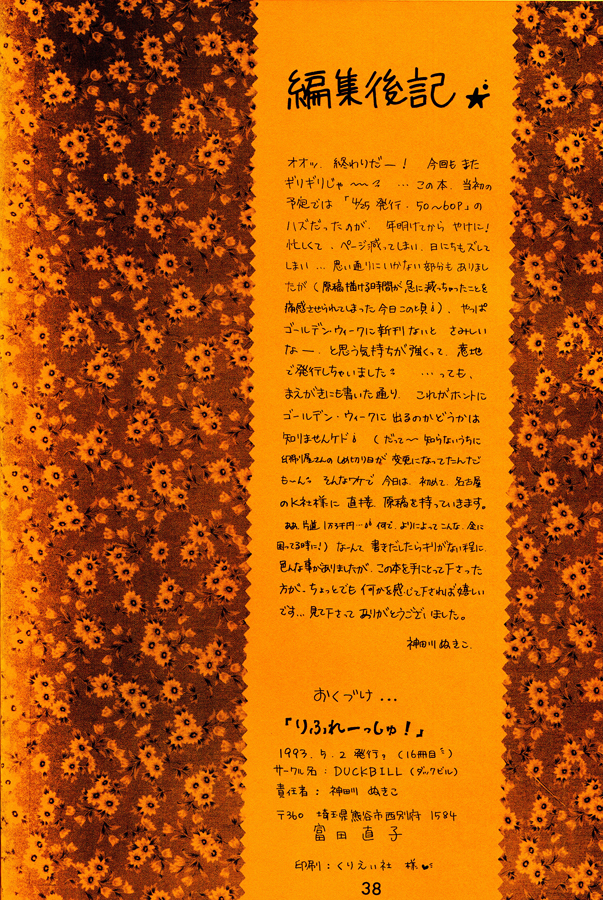 編集後記 ★
オオッ、終わりだー! 今回も また
ギリギリじゃ〜〜? … この本、当初の
予定では「4/25 発行・50〜60P」の
ハズだったのが、年明けてから やけに!
忙しくて、ページ減ってしまい、日にちもズレて
しまい … 思い通りにいかない部分もありまし
たが (原稿描ける時間が急に減っちゃったことを
痛感させられてしまった今日この頃)、やっぱ
ゴールデンウィークに新刊ないと さみしい
なー、と思う気持ちが強くって、意地
で発行しちゃいました? …っても、
まえがきにも書いた通り、これがホントに
ゴールデン・ウィークに 出るのかどうかは
知りませんケド (だって〜 知らないうちに
印刷屋さんの〆め切り日が 変更になってたんだ
もーん。そんなワケで 今日は、初めて、名古屋
のK社様に 直接 原稿を持っていきます。
ああ、片道 1万3千円…。何で、よりによってこんな、金に
困ってる時に!) なーんて 書きだしたらキリがない程に
色んな事がありましたが、この本を手にとって下さった
方が、ちょっとでも 何かを感じて下されば 嬉しい
です… 見て下さって ありがとうございました。
神田川 ぬきこ
おくづけ…
『りふれーっしゅ!』
1993.5.2 発行 (16冊目)
サークル名:DUCKBILL (ダックビル)
責任者:神田川 ぬきこ
〒360 埼玉県熊谷市西別府 1584
富田直子
印刷:くりえい社 様
38